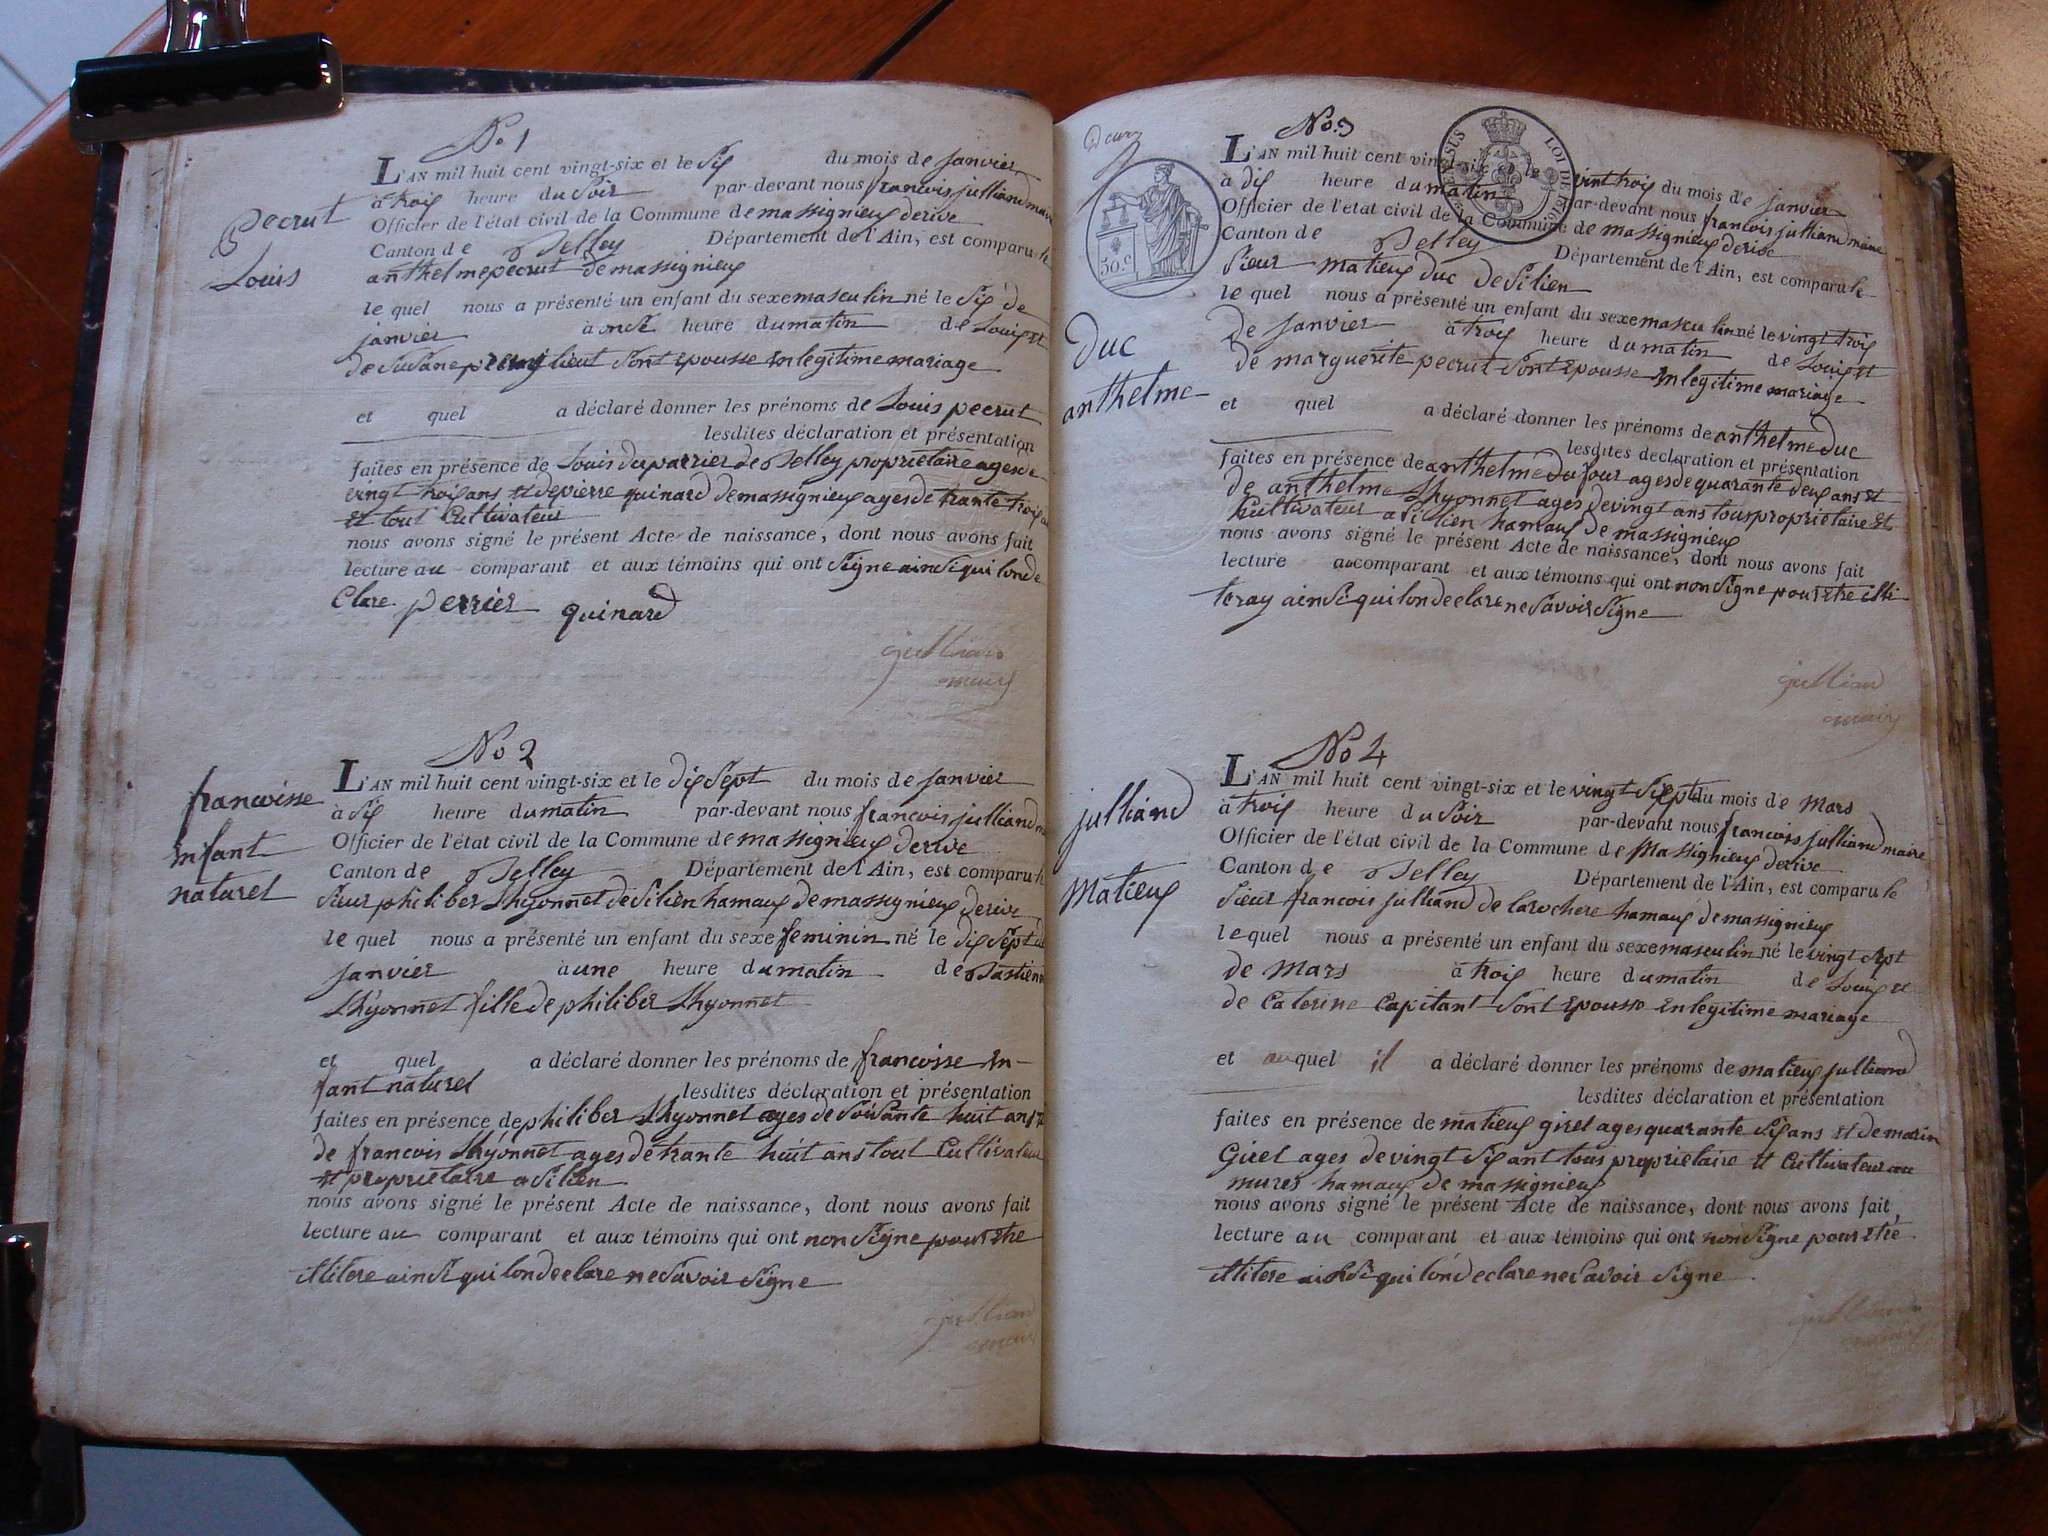 No 1
pecrut
Louis
L'AN mil huit cent vingt-six et le Six du mois de janvier
à trois heure du Soir par-devant nous francois julliand maire
Officier de l'état civil de la Commune de massignieux derive
Canton de Belley Département de l'Ain, est comparu le
anthelme pecrut de massignieux
le quel nous a présenté un enfant du sexe masculin né le Six de
janvier à onse heure du matin de Louis et
de Susane Sont Epousse en legitime mariage
et quel a déclaré donner les prénoms de Louis pecrut
lesdites déclaration et présentation
faites en présence de Louis de Belley proprietaire ages de
vingt trois ans et de pierre quinard de massignieux ages de trante trois
et tout Cultivateur
nous avons signé le présent Acte de naissance, dont nous avons fait
lecture au comparant et aux témoins qui ont Signe ainsi qui londe
Clare perrier quinard
julliand
maire
No 2
francoisse
Enfant
naturel
L'AN mil huit cent vingt-six et le dix Sept du mois de janvier
à Six heure du matin par-devant nous francois julliand
Officier de l'état civil de la Commune de massignieux derive
Canton de Belley Département de l'Ain, est comparu le
Sieur philiber Lhyonnet de Silien hamaux de massignieux derive
le quel nous a présenté un enfant du sexe feminin né le dix Sept de
janvier à une heure du matin de Bastienne
Lhyonnet fille de philiber Lhyonnet
et quel a déclaré donner les prénoms de francoisse en-
fant naturel lesdites déclaration et présentation
faites en présence de philiber Lhyonnet ages de Soisante huit ans et
de francois Lhyonnet ages de trante huit ans tout Cultivateur
et proprietaire a Silien
nous avons signé le présent Acte de naissance, dont nous avons fait
lecture au comparant et aux témoins qui ont non Signe pour etre
illitere ainsi qui londeclare ne Savoir Signe
julliand
maire
No. 3
50.c
LOI DE 1816
duc
anthelme
L'AN mil huit cent vingt-six et le vint trois du mois de janvier
à dix heure du matin par-devant nous francois julliand maire
Officier de l'état civil de la Commune de massignieux derive
Canton de Belley Département de l'Ain, est comparu le
Sieur matieux duc de Silien
le quel nous a présenté un enfant du sexe masculin né le vingt trois
de janvier à trois heure du matin de Louis et
de marguerite pecrut Sont Epousse en legitime mariage
et quel a déclaré donner les prénoms de anthelme duc
lesdites déclaration et présentation
faites en présence de anthelme dufour ages de quarante deux ans et
de anthelme Lhyonnet ages de vingt ans tous proprietaire et
Cultivateur a Silien hamaux de massignieux
nous avons signé le présent Acte de naissance, dont nous avons fait
lecture au comparant et aux témoins qui ont non Signe pour etre illi
teray ainsi qui londeclare ne Savoir Signe
julliand
maire
No 4
julliand
Matieux
L'AN mil huit cent vingt-six et le vingt Sept du mois de Mars
à trois heure du Soir par-devant nous francois julliand maire
Officier de l'état civil de la Commune de Massignieux derive
Canton de Belley Département de l'Ain, est comparu le
Sieur francois julliand de larochere hamaux de massignieux
le quel nous a présenté un enfant du sexe masculin né le vingt Sept
de Mars à trois heure du matin de Louis et
de Caterine Capitant Sont Epousse en legitime mariage
et au quel il a déclaré donner les prénoms de matieux julliand
lesdites déclaration et présentation
faites en présence de matieux girel ages quarante Six ans et de marin
Girel ages de vingt Six ant tous proprietaire et Cultivateur au
mures hamaux de massignieux
nous avons signé le présent Acte de naissance, dont nous avons fait
lecture au comparant et aux témoins qui ont non Signe pour etre
illitere ainsi qui londeclare ne Savoir Signe
julliand
maire